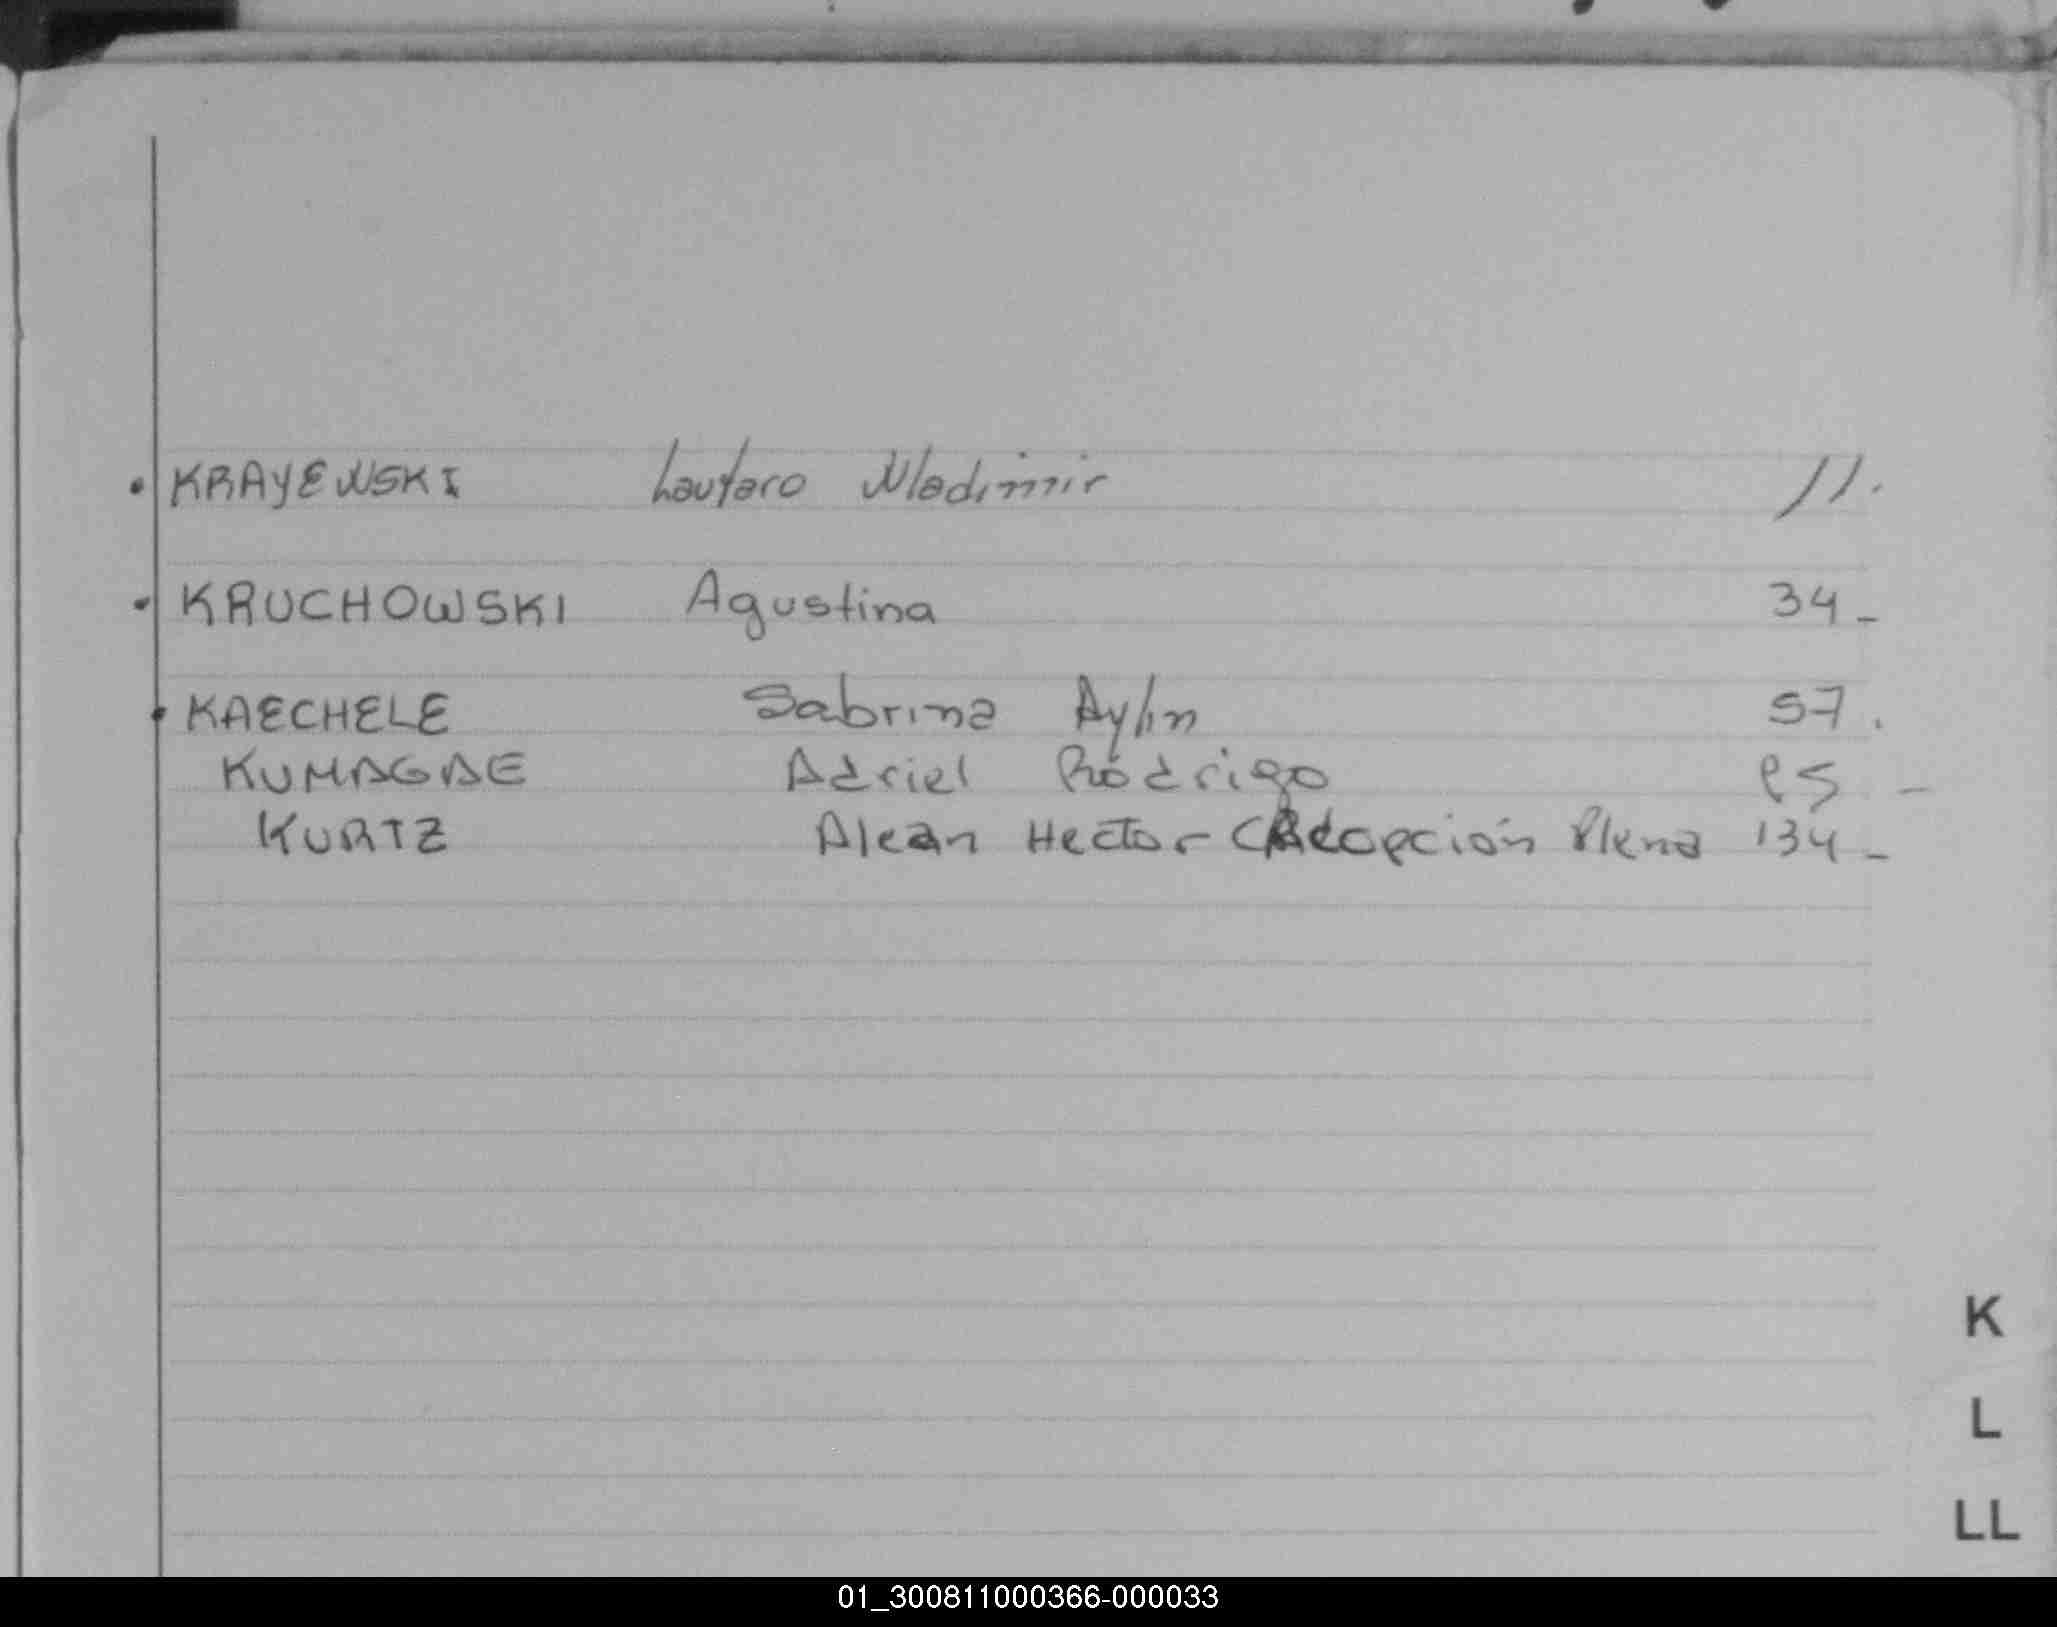 KRAYEWSKI Lautaro Wladimir 11.
KRUCHOWSKI Agustina 34-
KAECHELE Sabrina Aylin 57.
KUMAGAE Adriel Rodrigo 85 -
KURTZ Alean Hector (Adopción Plena 134-
K
L
LL
01_300811000366-000033